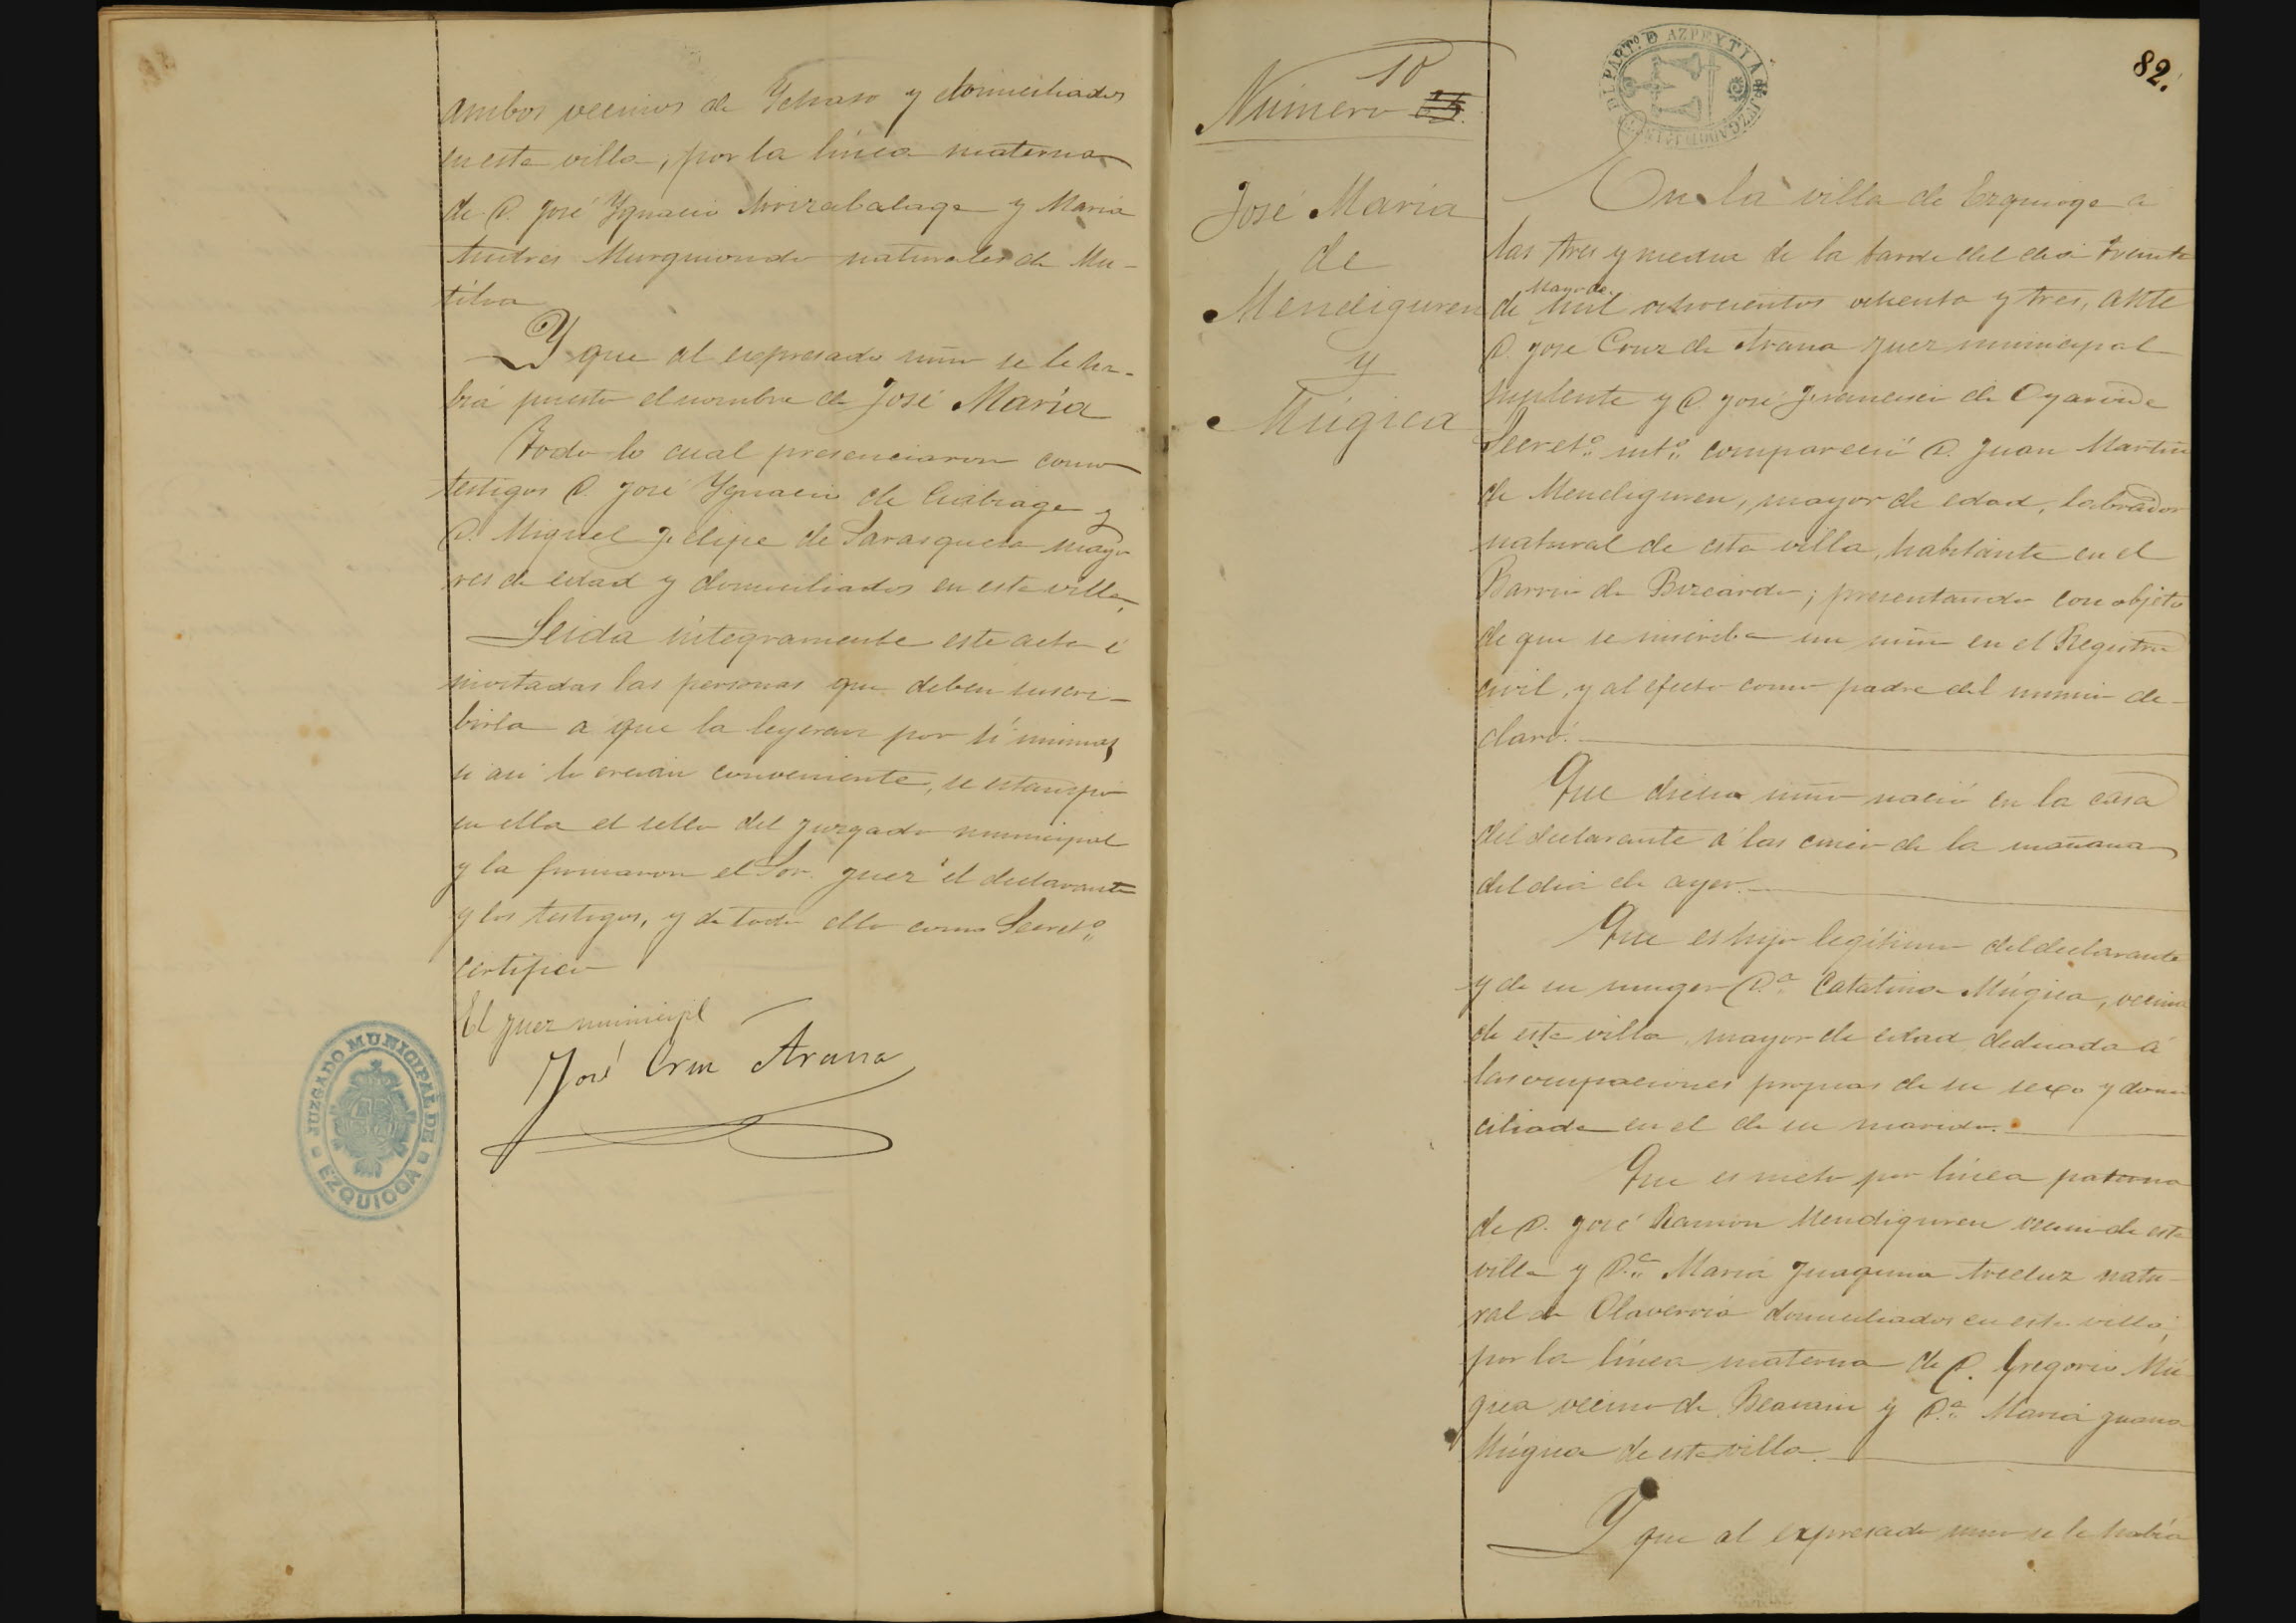 ambos vecinos de y domiciliados
en esta villa, por la línea materna
de D. José Ygnacio y Maria
Andres Murguiondo naturales de Mu-
tiloa
Y que al expresado niño se le ha-
bia puesto el nombre de José María
Todo lo cual presenciaron como
testigos D. José Ygnacio de y
D. Miguel Felipe de Sarasqueta mayo
res de edad y domiciliados en esta villa,
Leida integramente este acta é
invitadas las personas que deben suscri-
birla a que la leyeran por sí mismas
si asi lo creian conveniente, se estampó
en ella el sello del juzgado municipal
y la firmaron el Sor. juez el declarante
y los testigos, y de todo ello como Secret.º
certifico
El juez municipl
José Cruz Arana
JUZGADO MUNICIPAL DE
EZQUIOGA
82.
DEL PARTº. D AZPEYTIA
JUZGADO
10
Número
José María
de
Mendiguren
y
Múgica
En la villa de Ezquioga a
las tres y media de la tarde del dia treinta
Mayo de
de mil ochocientos ochenta y tres, ante
D. José Cruz de Arana juez municipal
suplente y D. José Francisco de Oyarvide
Secret.º int.º compareció D. Juan Martin
de Mendiguren, mayor de edad, labrador
natural de esta villa, habitante en el
Barrio de ; presentando con objeto
de que se inscriba un niño en el Registro
civil, y al efecto como padre del mismo de-
claró.
Que dicho niño nació en la casa
del declarante a las cinco de la mañana
del dia de ayer.
Que es hijo legítimo del declarante
y de su muger D.ª Catalina Múgica, vecina
de esta villa, mayor de edad dedicada á
las ocupaciones propias de su sexo y domi
ciliada en el de su marido.
Que es nieto por línea paterna
de D. José Ramon Mendiguren vecino de esta
villa y D.ª Maria Juaquina natu-
ral de Olaverria domiciliados en esta villa;
por la línea materna de D. Gregorio Mú
gica vecino de Beasain y D.ª Maria Juana
Múgica de esta villa.
Y que al expresado niño se le habia